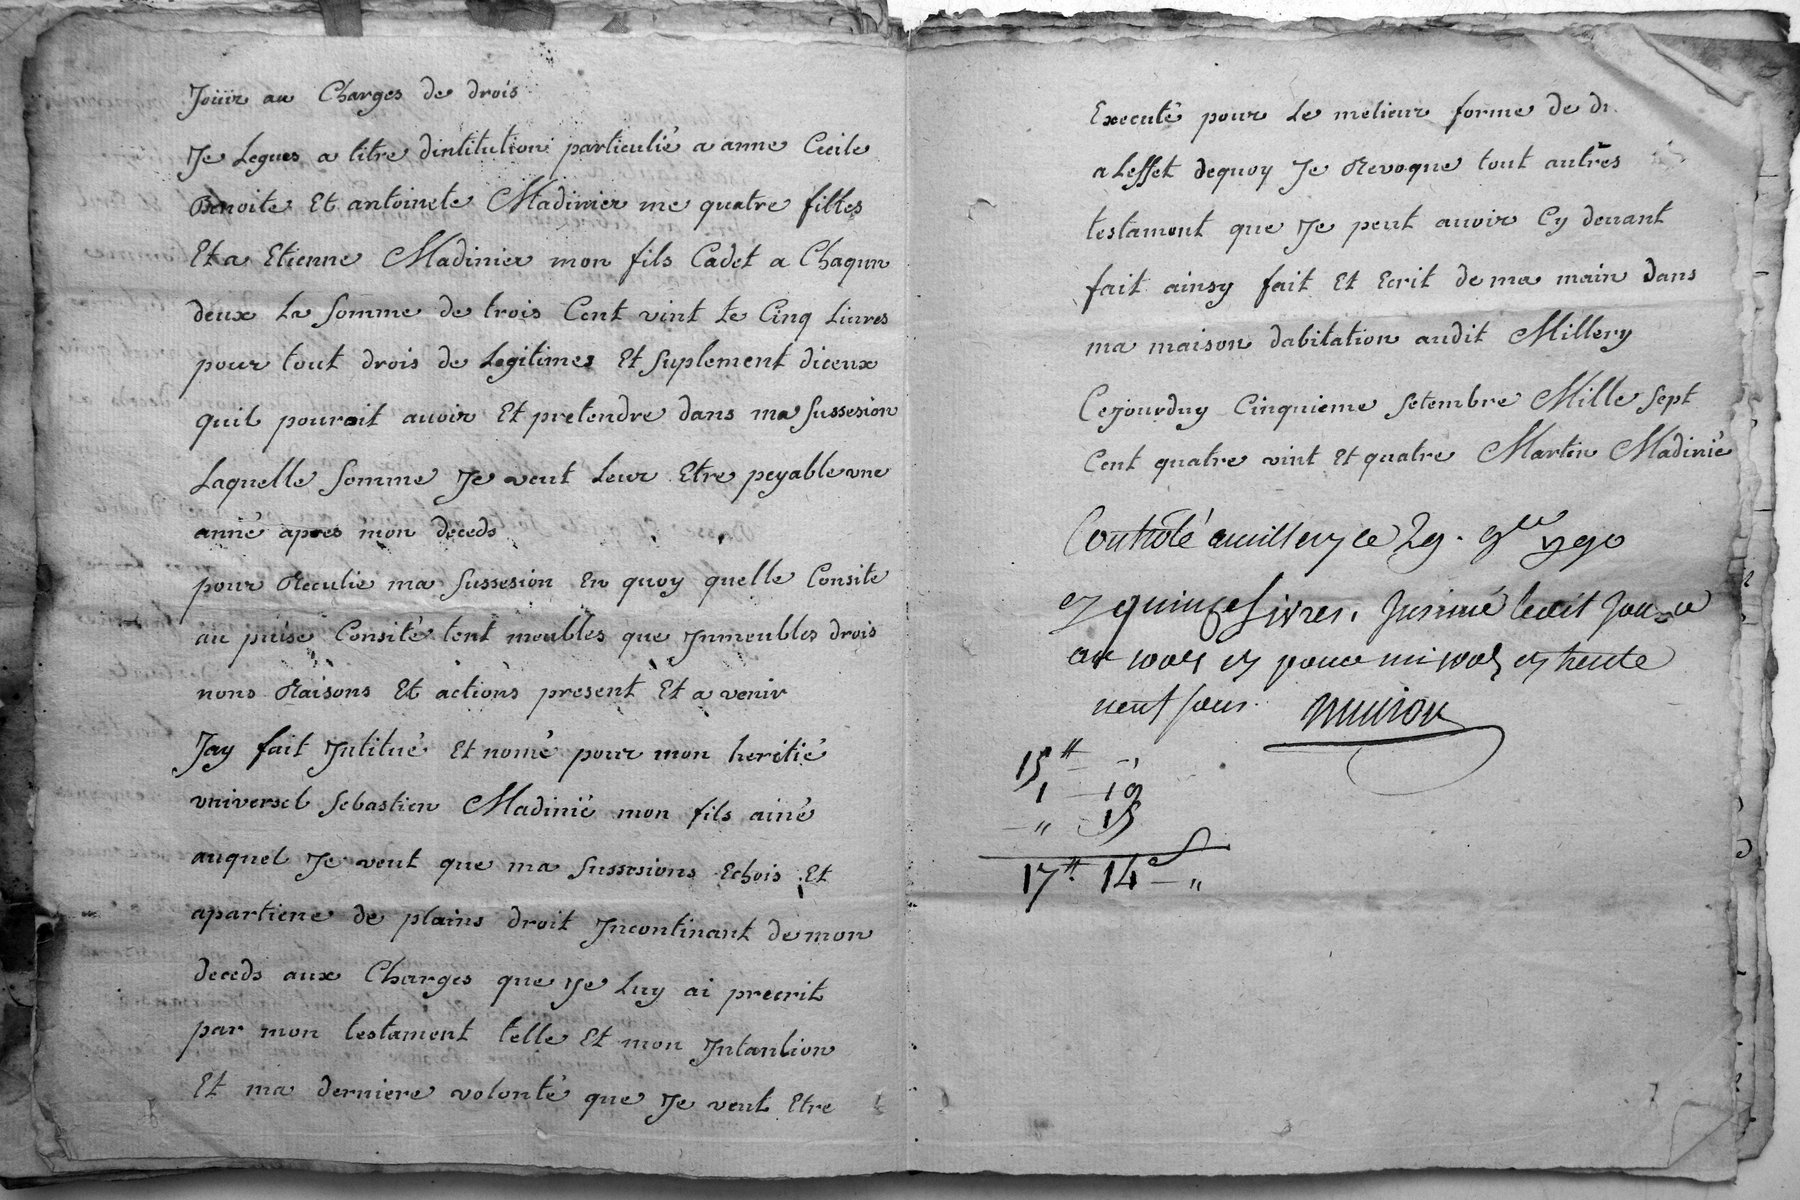 Joüir au Charges de drois
Je Legues a titre dintitution particulié a anne Cicile
Benoite Et antoinete Madinier me quatre filles
Et a Etienne Madinier mon fils Cadet a Chaqun
deux La somme de trois Cent vint te Cinq Livres
pour tout drois de Legitimes Et suplement diceux
quil pouroit avoir Et pretendre dans ma sussesion
Laquelle somme Je veut Leur Etre peyable une
anné apres mon deceds
pour Reculie ma sussesion En quoy quelle Consite
au puise Consité tent meubles que Jnmeubles drois
nons Raisons Et actions present Et a venir
Jay fait Jntitué Et nomé pour mon heritié
vniversel Sebastien Madinié mon fils ainé
auquel Je veut que ma sussesions Echois Et
apartiene de plains droit Jncontinant de mon
deceds aux Charges que Je Luy ai precrit
par mon testament telle Et mon Jntantion
Et ma derniere volonté que Je veut Etre
Executé pour Le melieur forme de
a Leffet dequoy Je Revoque tout autres
testament que Je peut avoir Cy devant
fait ainsy fait Et Ecrit de ma main dans
ma maison dabitation audit Millery
Cejourduy Cinquieme Setembre Mille Sept
Cent quatre vint Et quatre Martin Madinié
Controlé a millery ce 29. 9bre 1790
quinze Livres.
neuf sous.
15 ​#
1 19
" 15
17 # 14 s "